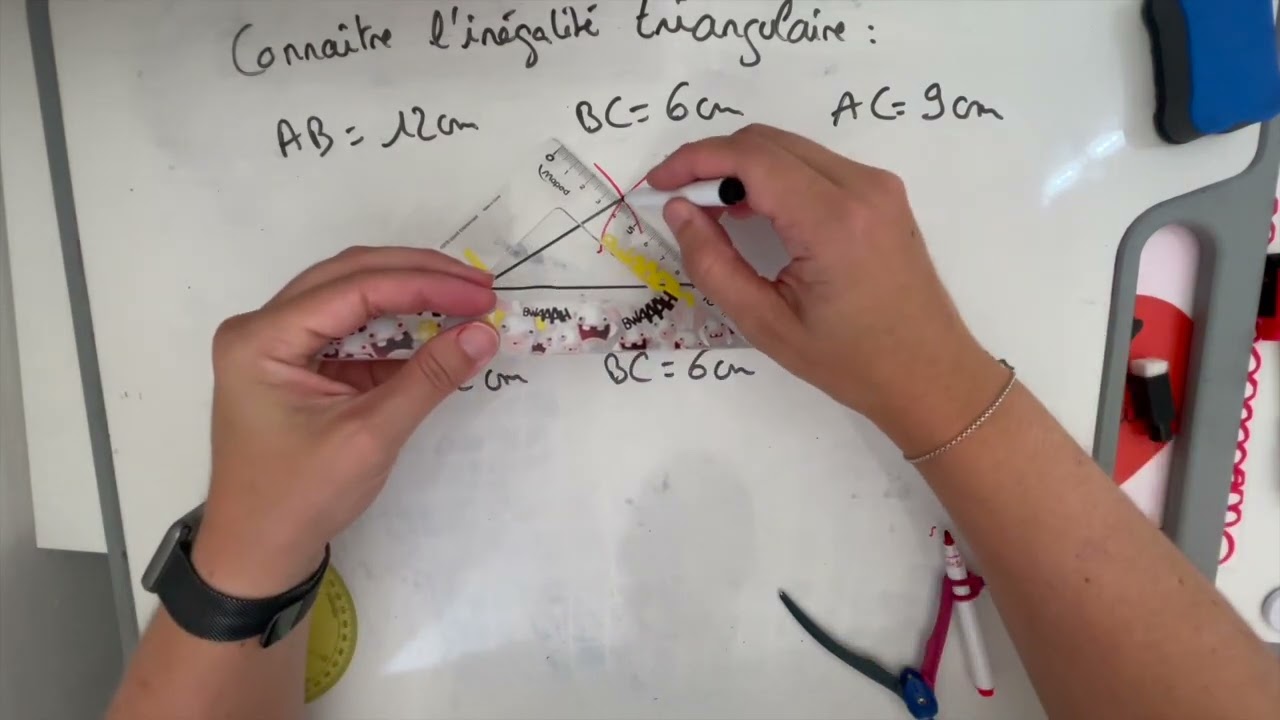 Connaître l'inégalité triangulaire :
AB = 12cm BC = 6cm AC = 9cm
0 1 2 3 5 6 7
Maped
BWAAAH BWAAAH
cm BC = 6cm